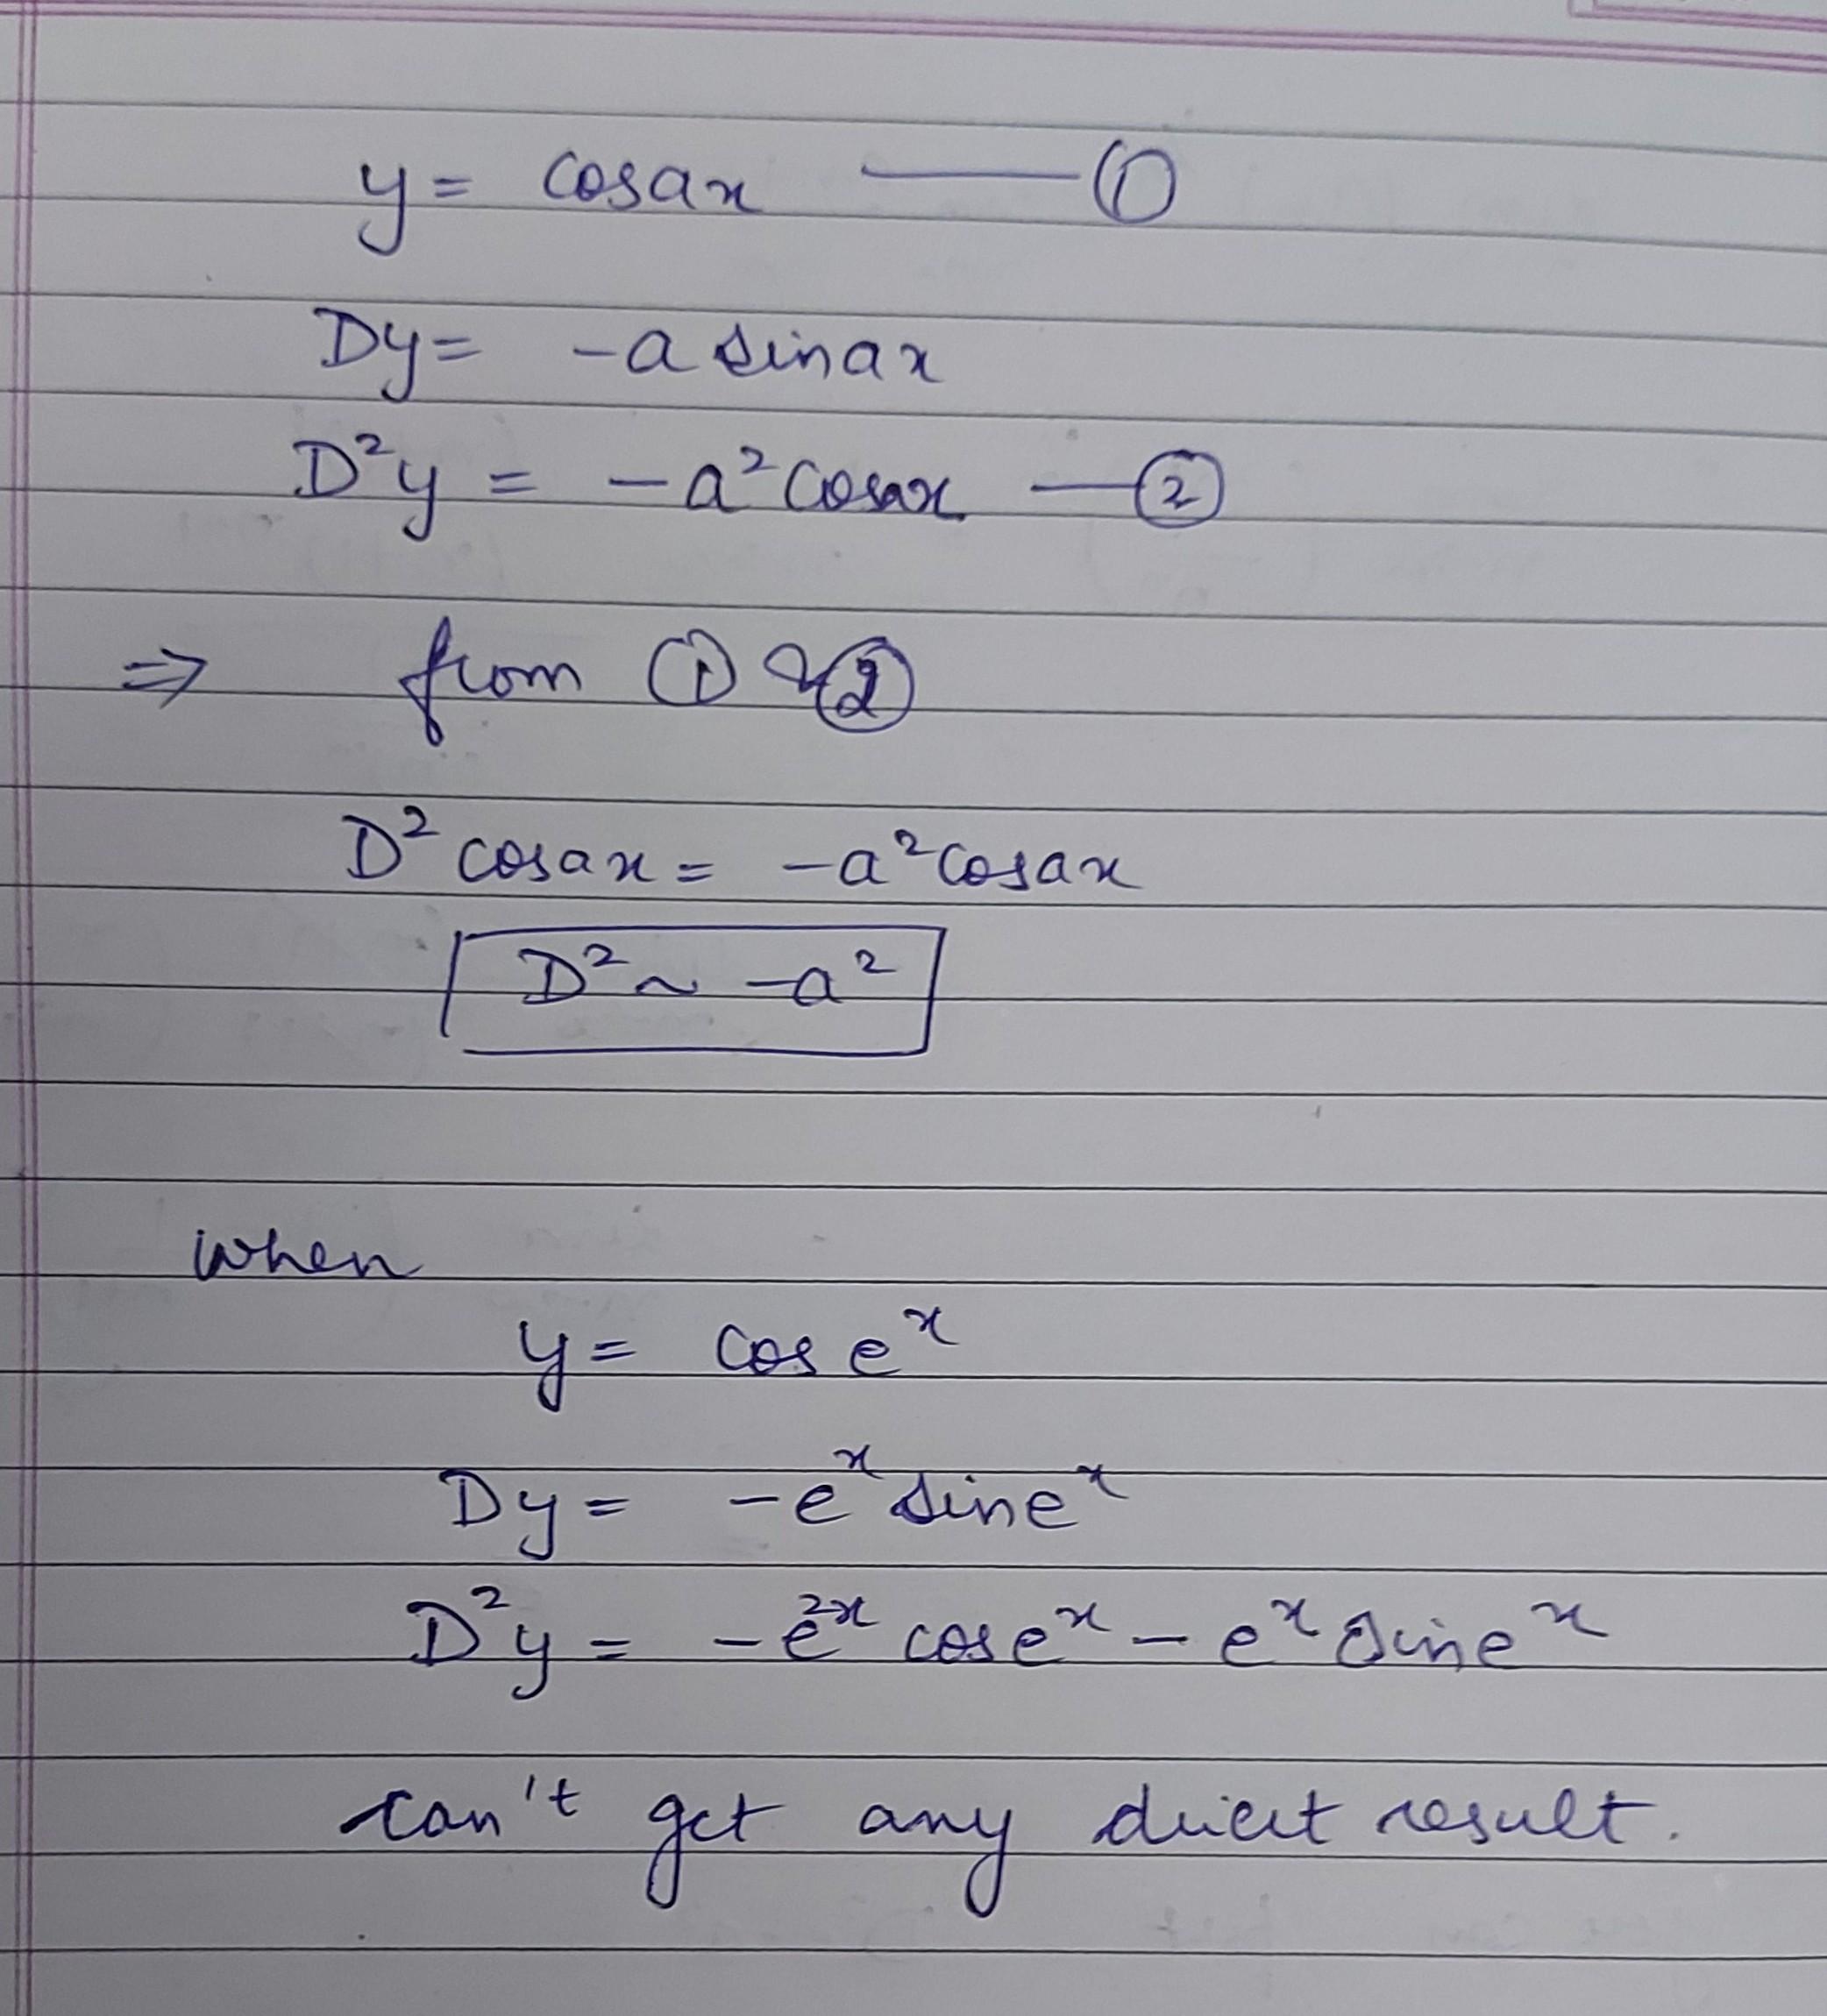 y = cosax —— ①
Dy = -a sinax
D²y = -a² cosax — ②
⇒ from ① & ②
D² cosax = -a² cosax
D² ~ -a²
when
y = cos eˣ
Dy = -eˣ sin eˣ
D²y = -e²ˣ cos eˣ - eˣ sin eˣ
can't get any direct result.